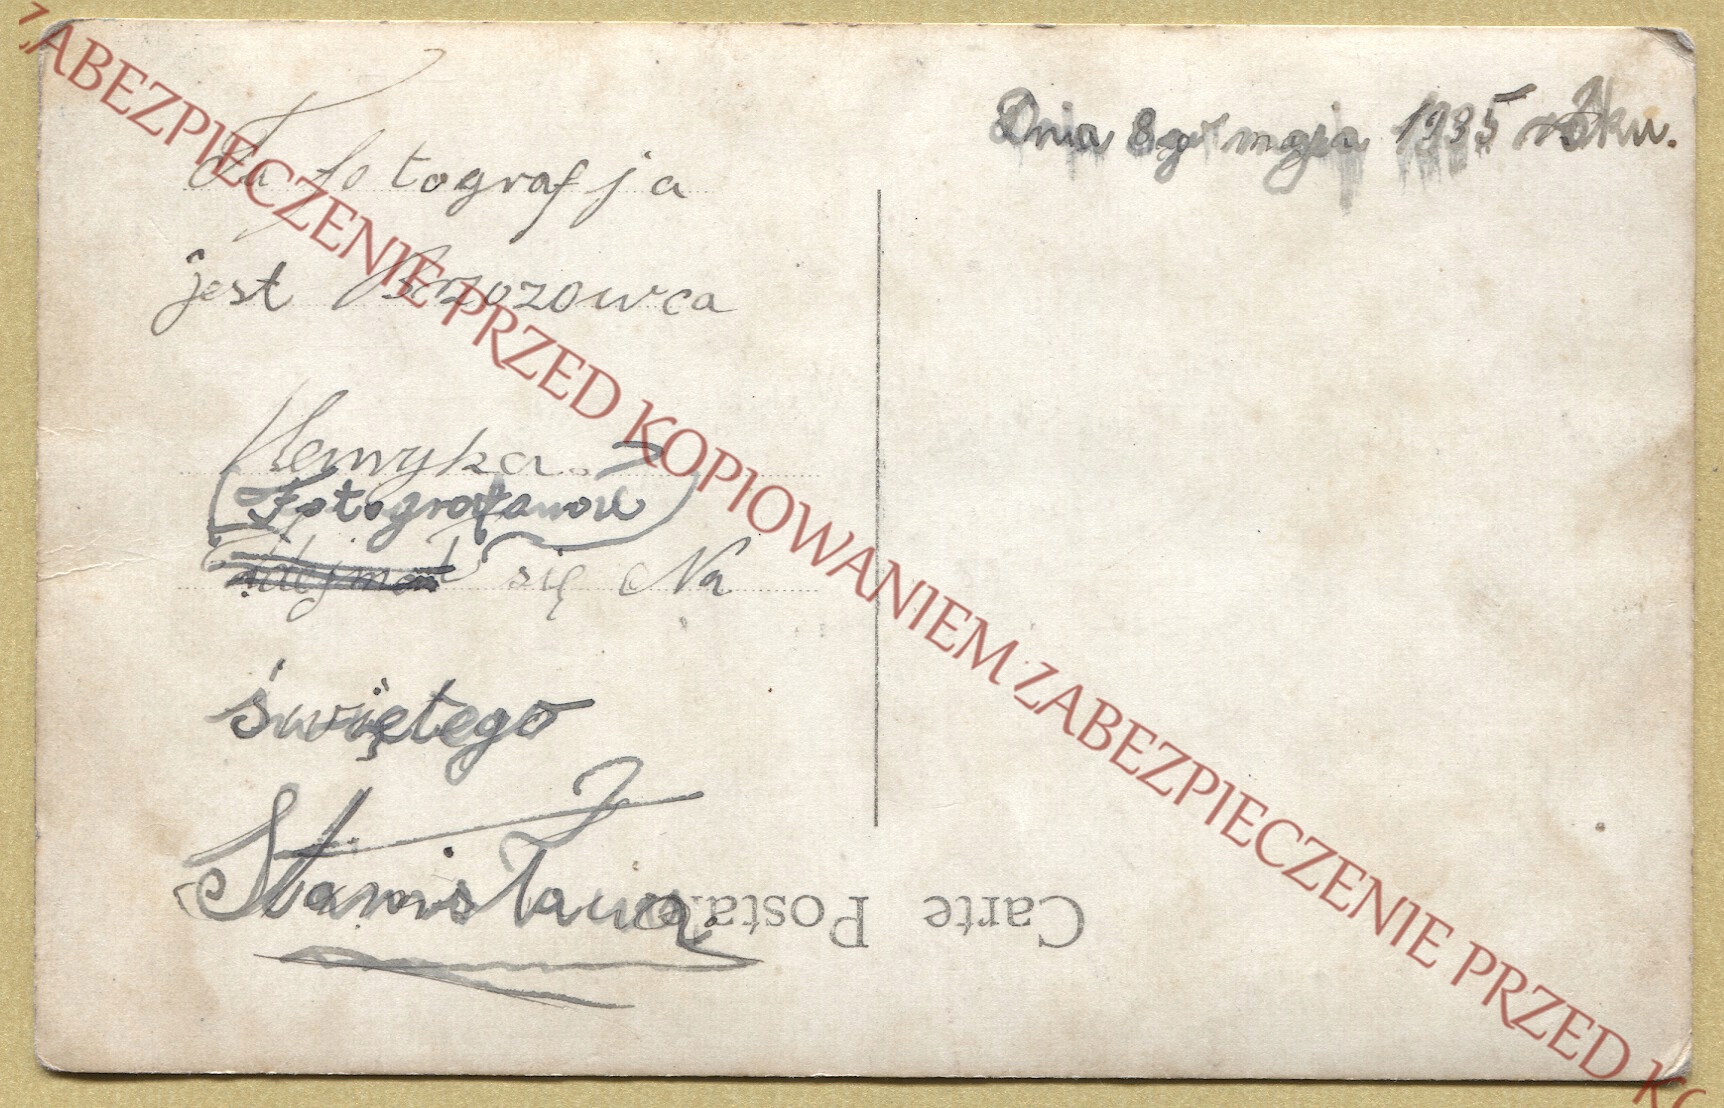 Ta fotografja
jest Brzozowca
Henryka.
Fotografował
się Na
świętego
Stanisława
Dnia 8go maja 1935 roku.
Carte Postale
ZABEZPIECZENIE PRZED KOPIOWANIEM ZABEZPIECZENIE PRZED KO